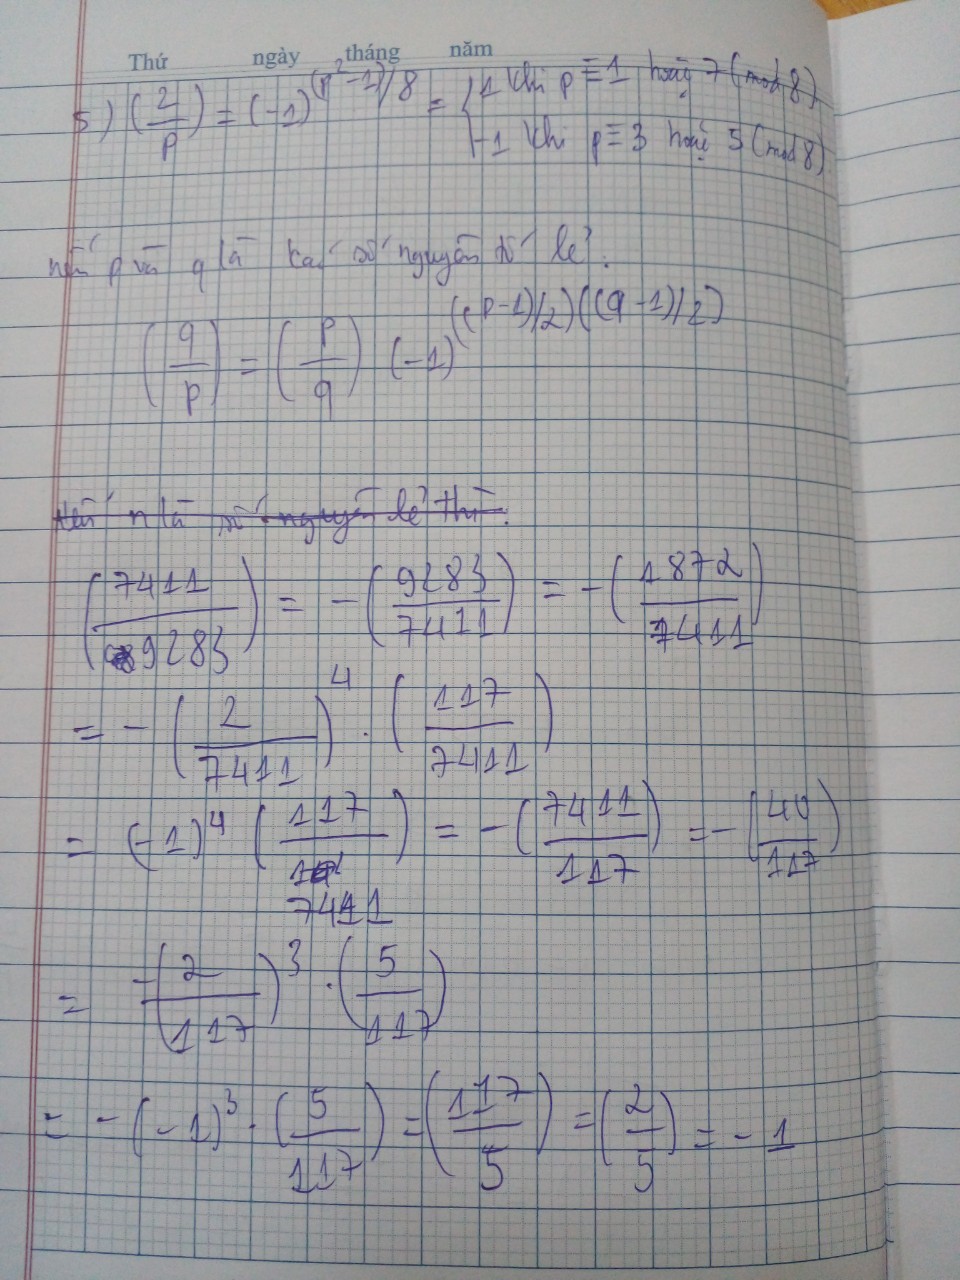 Thứ ngày tháng năm
5) (2/p) = (-1)^((p^2-1)/8) = { 1 khi p ≡ 1 hoặc 7 (mod 8)
-1 khi p ≡ 3 hoặc 5 (mod 8)
nếu p và q là các số nguyên tố lẻ.
(q/p) = (p/q) (-1)^(((p-1)/2)((q-1)/2))
Nếu n là số nguyên lẻ thì.
(7411/9283) = -(9283/7411) = -(1872/7411)
= -(2/7411)^4 . (117/7411)
= (-1)^4 (117/7411) = -(7411/117) = -(40/117)
= -(2/117)^3 . (5/117)
= -(-1)^3 . (5/117) = (117/5) = (2/5) = -1